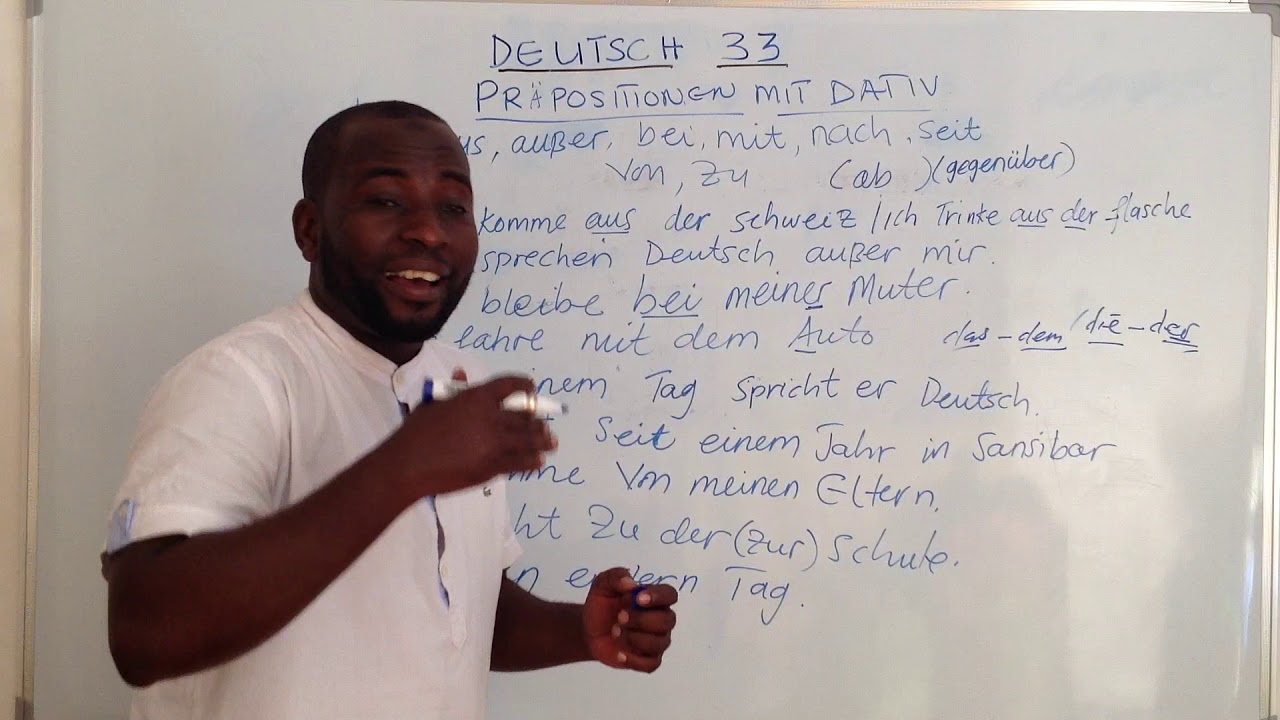 DEUTSCH 33
PRÄPOSITIONEN MIT DATIV
us, außer, bei, mit, nach, seit
Von, zu (ab) (gegenüber)
komme aus der schweiz /ich Trinke aus der flasche
sprechen Deutsch außer mir.
bleibe bei meiner Muter.
fahre mit dem Auto das - dem / die - der
inem Tag spricht er Deutsch.
t seit einem Jahr in Sansibar
mme Von meinen Eltern.
ht Zu der (zur) schule.
n Tag.